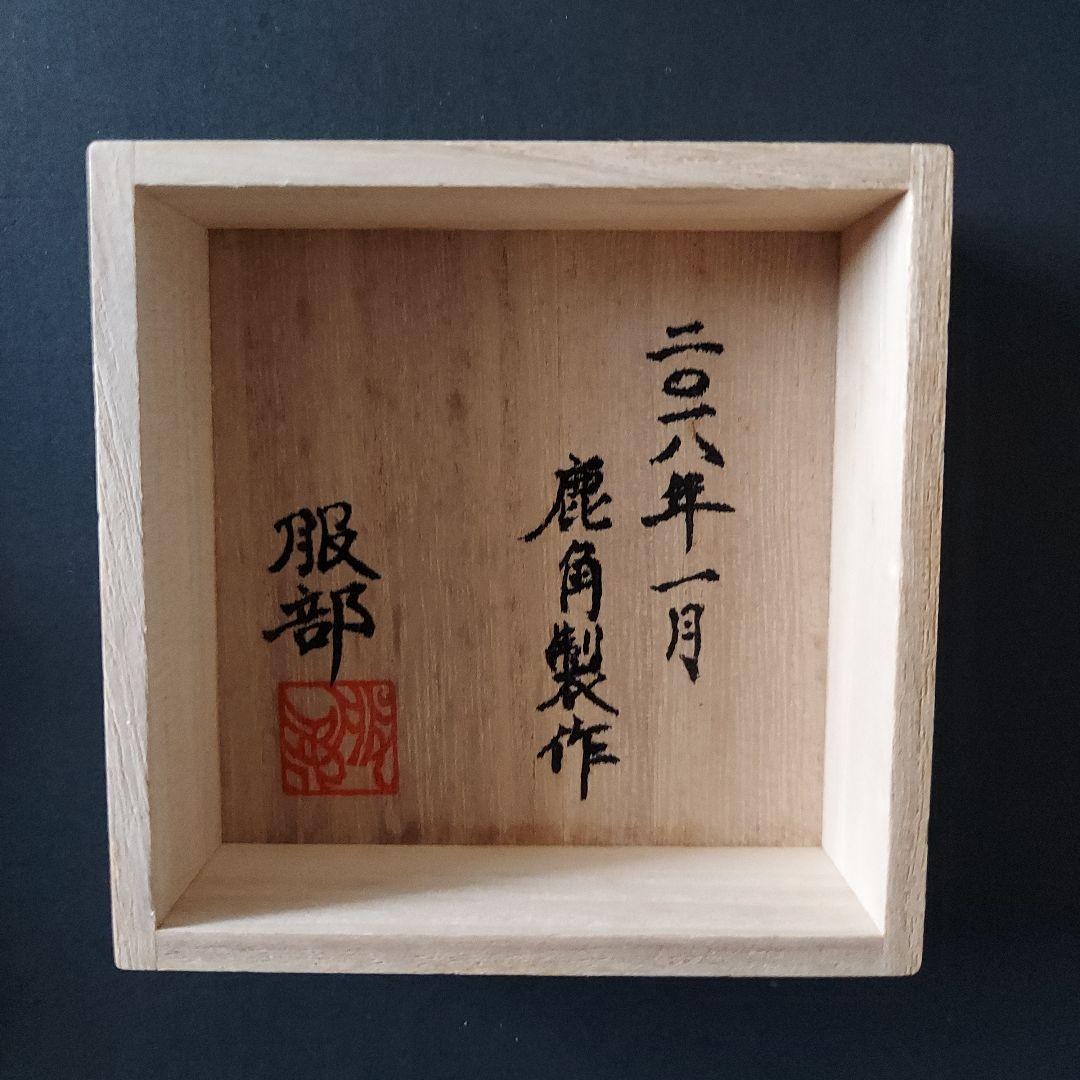 二〇一八年一月
鹿角製作
服部